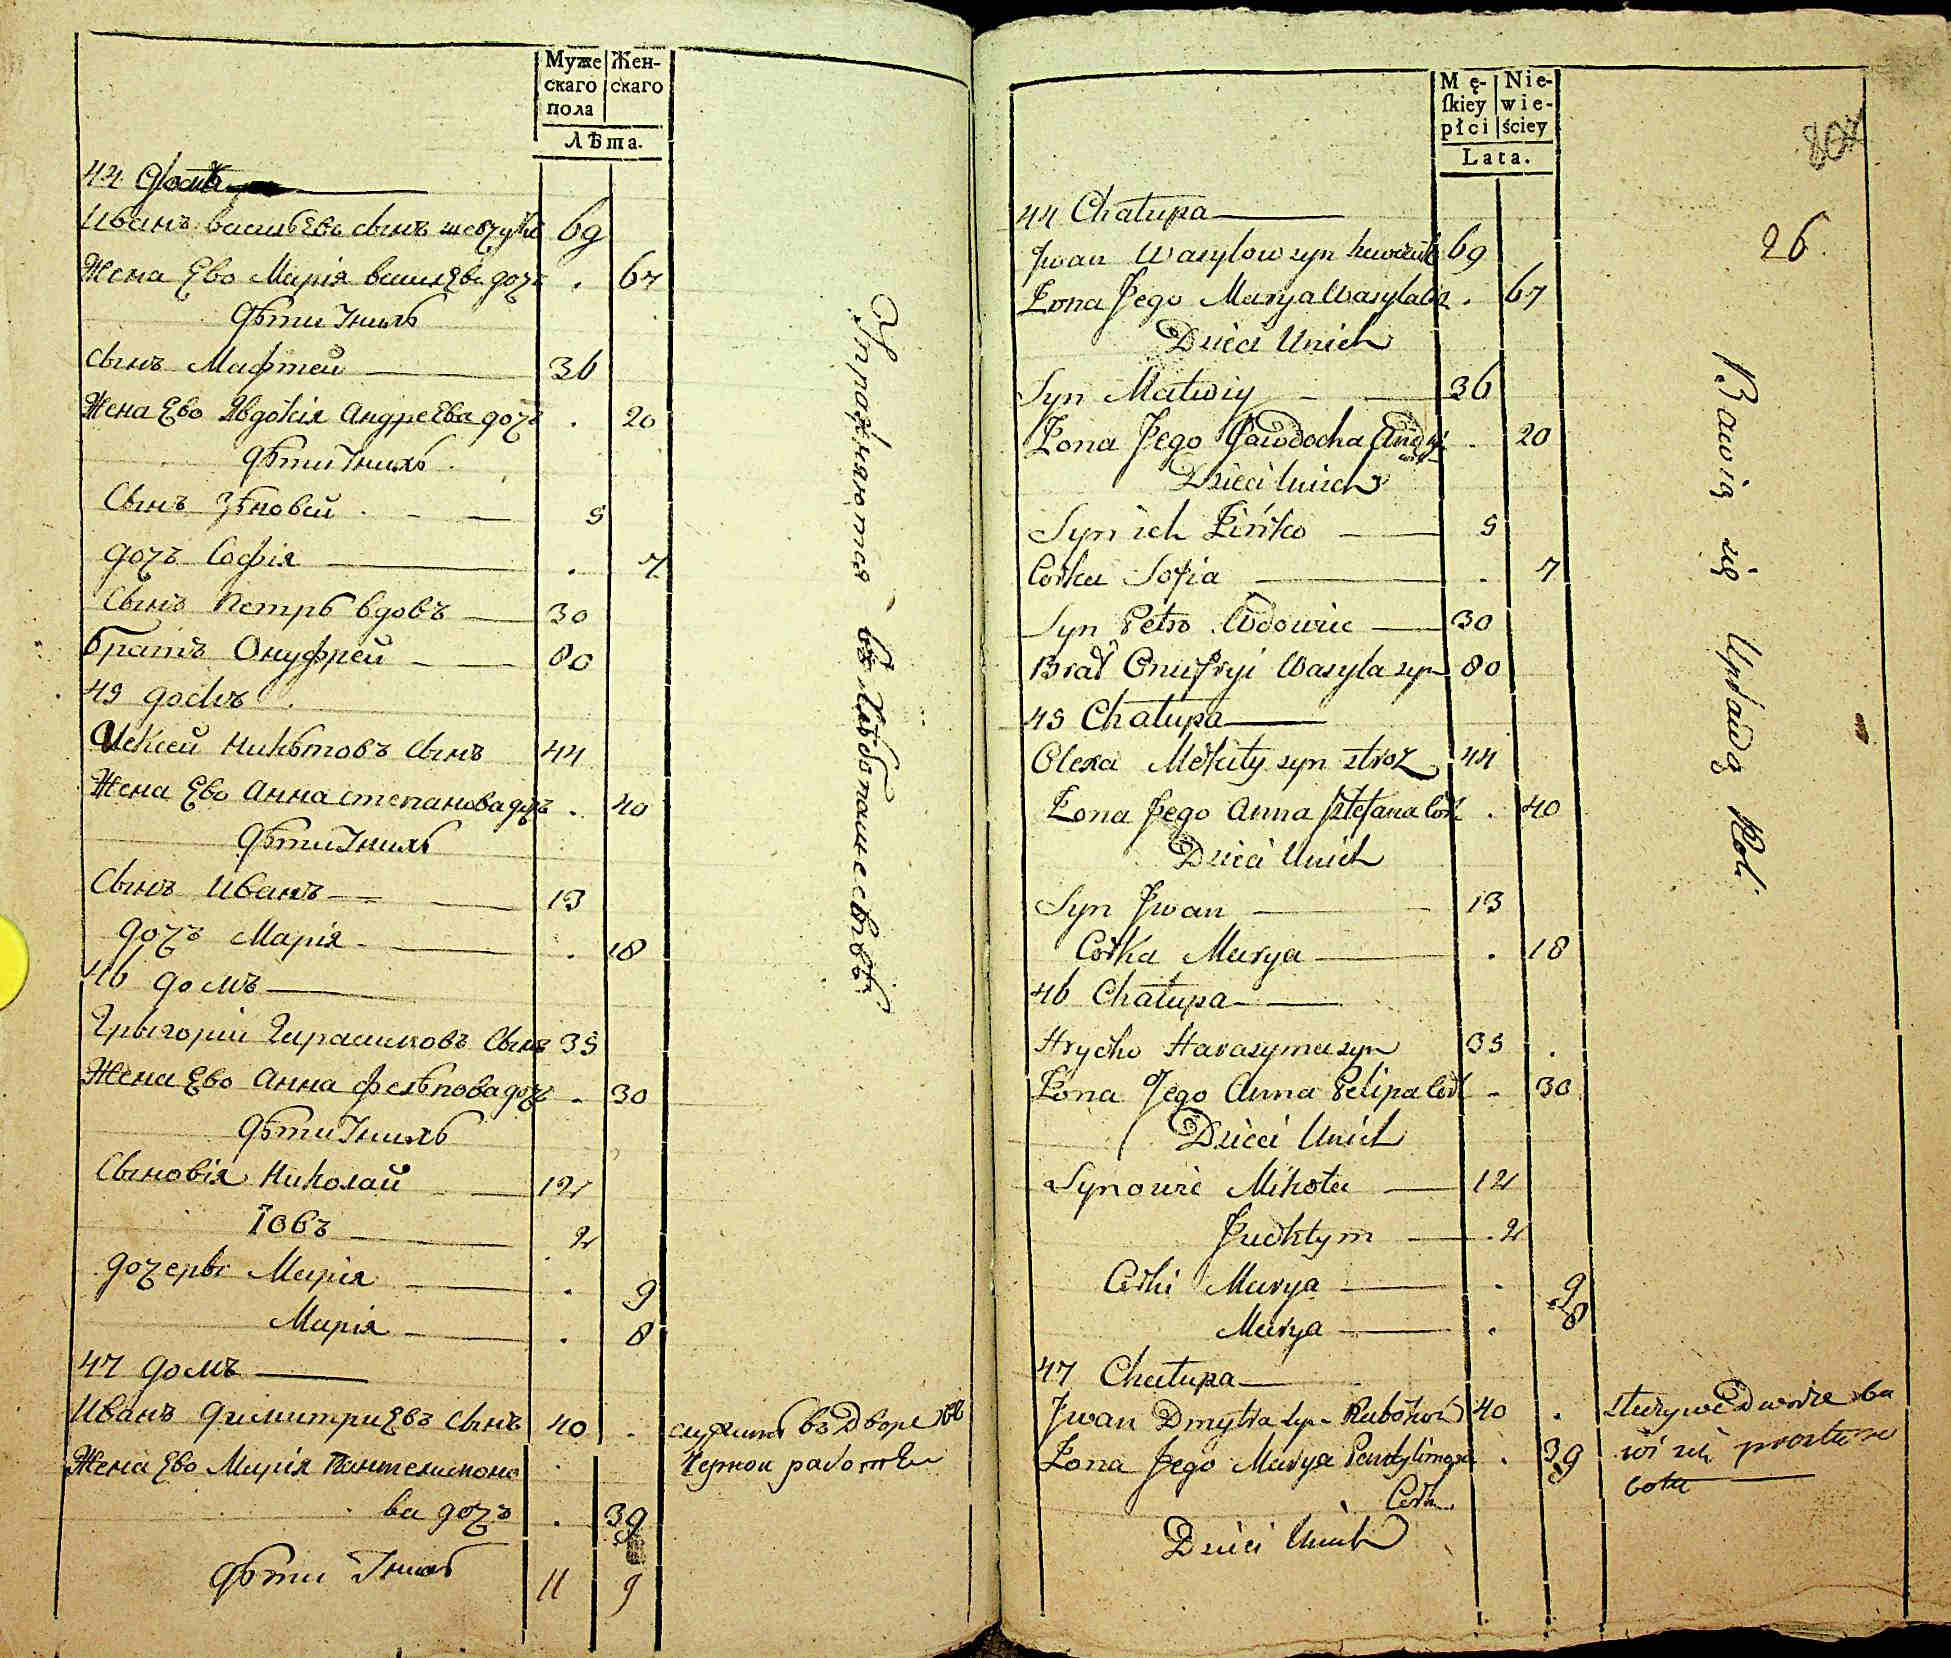 Муже
скаго
пола
Жен-
скаго
Лѣта.
44 домъ
Иванъ васильева сынъ
69
Жена Ево Марія васильева дочь . 67
дѣти Унихъ
Сынъ Мафтей 36
Жена Ево Явдокія Андреева дочь . 20
дѣти Унихъ
Сынъ Зѣновей 5
дочь Софія . 7
Сынъ Петръ вдовъ 30
братъ Онуфрей 80
45 домъ
Алексей Никитовъ Сынъ 44
Жена Ево Анна степанова дочь . 40
дѣти Унихъ
Сынъ Иванъ 13
дочъ Марія . 18
46 домъ
Григорій Гирасимовъ Сынъ 35
Жена Ево Анна Фелѣпова дочь . 30
дѣти Унихъ
Сыновія Николай 12
Іовъ 2
дочерьи Марія . 9
Марія . 8
47 домъ
Иванъ Димитриевъ сынъ 40 .
Жена Ево Марія Пантелимоно
ва дочъ . 39
дѣти Унихъ
11 9
Упражняются въ хлѣбопашествѣ
служитъ въ Дворе
Черной работы
Mę-
skiey
płci
Nie-
wie-
ściey
Lata.
26
44 Chałupa
Jwan Wasylow syn
69
Żona Jego Marya Wasyla . 67
Dzieci Unich
Syn Matwiy 36
Żona Jego Jawdocha . 20
Dzieci Unich
Syn ich Zińko 5
Corka Sofia . 7
Syn Petro Wdowiec 30
Brat Onufryi Wasyla syn 80
45 Chałupa
Olexa Mekity syn stroz 44
Żona Jego Anna Sztefana Cor . 40
Dzieci Unich
Syn Jwan 13
Corka Marya . 18
46 Chałupa
Hryćko Harasyma syn 35 .
Żona Jego Anna Pelipa Cor . 30
Dzieci Unich
Synowie Mikoła 12
Juchtym 2
Corki Marya . 9
Marya . 8
47 Chałupa
Jwan Dmytra syn 40 .
Żona Jego Marya . 39
Corka
Dzieci Unich
Bawią się Uprawą Roli